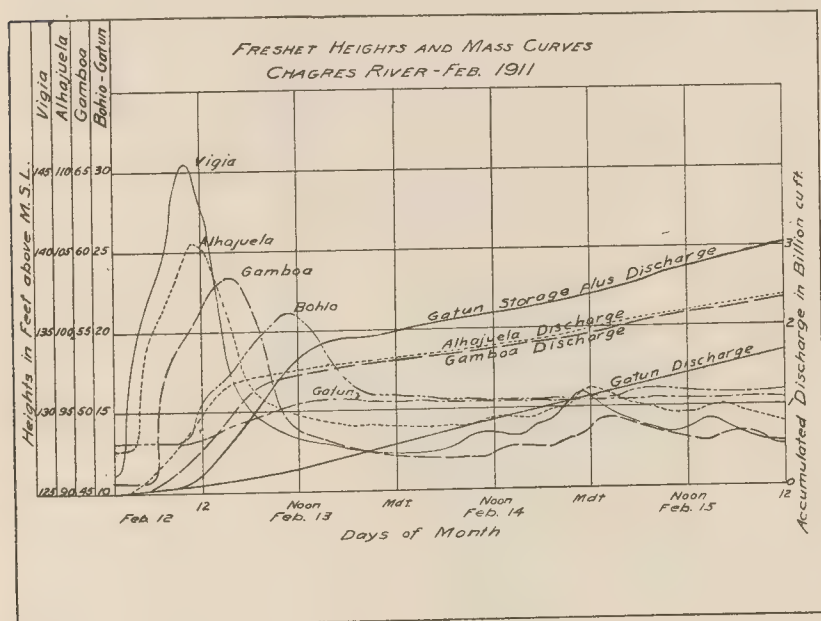 FRESHET HEIGHTS AND MASS CURVES
CHAGRES RIVER-FEB. 1911
Vigia
Alhajuela
Gamboa
Bohio-Gatun
Heights in Feet above M.S.L.
145 110 65 30
140 105 60 25
135 100 55 20
130 95 50 15
125 90 45 10
Vigia
Alhajuela
Gamboa
Bohio
Gatun Storage plus Discharge
Alhajuela Discharge
Gamboa Discharge
Gatun Discharge
Gatun
3
2
1
0
Accumulated Discharge in Billion cu.ft.
Feb. 12
12
Noon
Feb. 13
Mdt.
Noon
Feb. 14
Mdt
Noon
Feb. 15
12
Days of Month